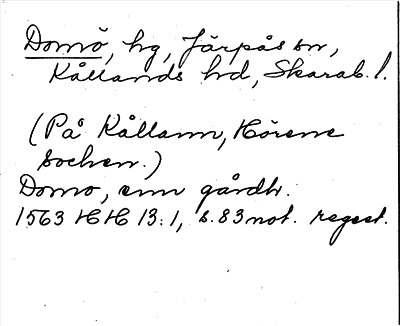 Domö, hg, Järpås sn,
Kållands hd, Skarab. l.
(På Kållann, Hörene
sochen.)
Domo, enn gårdh.
1563 HH 13:1, s. 83 not. regest.